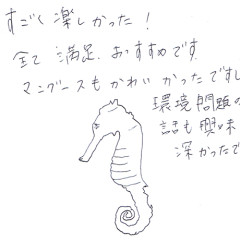 すごく楽しかった!
全て満足、おすすめです
マングースもかわいかったですし
環境問題の
話も興味
深かったで